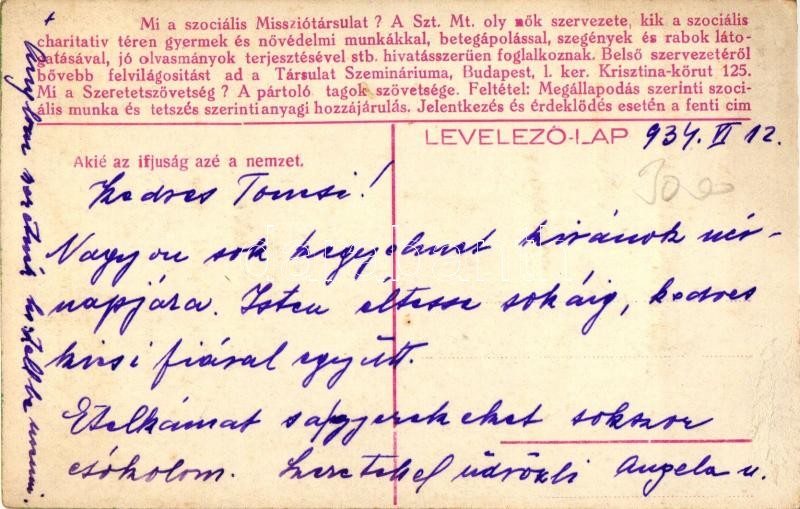 Mi a szociális Missziótársulat? A Szt. Mt. oly nők szervezete, kik a szociális
charitativ téren gyermek és nővédelmi munkákkal, betegápolással, szegények és rabok láto-
gatásával, jó olvasmányok terjesztésével stb. hivatásszerüen foglalkoznak. Belső szervezetéről
bővebb felvilágositást ad a Társulat Szemináriuma, Budapest, I. ker. Krisztina-körut 125.
Mi a Szeretetszövetség? A pártoló tagok szövetsége. Feltétel: Megállapodás szerinti szoci-
ális munka és tetszés szerinti anyagi hozzájárulás. Jelentkezés és érdeklődés esetén a fenti cim
LEVELEZŐ-LAP
934. VI 12.
Akié az ifjuság azé a nemzet.
Kedves Tomsi!
Nagyon sok kegyelmet kivánok név-
napjára. Isten éltesse sokáig, kedves
kicsi fiával együtt.
Etelkámat s a gyerekeket sokszor
csókolom. Szeretettel üdvözli Angela n.